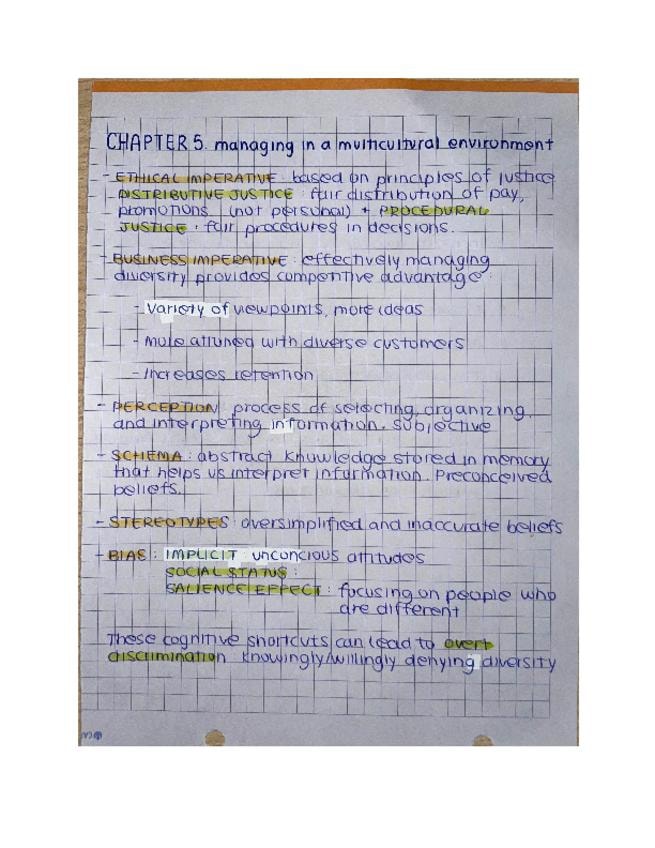 CHAPTER 5. managing in a multicultural environment
- ETHICAL IMPERATIVE: based on principles of justice
DISTRIBUTIVE JUSTICE: fair distribution of pay,
promotions (not personal) + PROCEDURAL
JUSTICE: fair procedures in decisions.
- BUSINESS IMPERATIVE: effectively managing
diversity provides competitive advantage:
- Variety of viewpoints, more ideas
- More attuned with diverse customers
- Increases retention
- PERCEPTION process of selecting, organizing,
and interpreting information. Subjective
- SCHEMA: abstract knowledge stored in memory
that helps us interpret information. Preconceived
beliefs.
- STEREOTYPES: oversimplified and inaccurate beliefs
- BIAS: IMPLICIT unconcious attitudes
SOCIAL STATUS:
SALIENCE EFFECT: focusing on people who
are different
These cognitive shortcuts can lead to overt
discrimination knowingly/willingly denying diversity